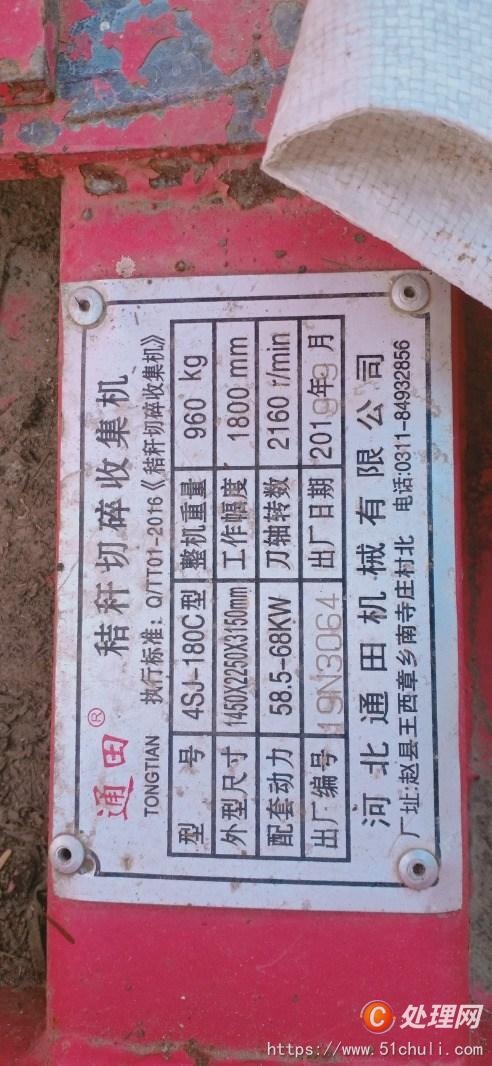 通田® 秸秆切碎收集机
TONGTIAN 执行标准：Q/TT01-2016《秸秆切碎收集机》
型号 4SJ-180C型 整机重量 960 kg
外型尺寸 1450X2250X3150mm 工作幅度 1800 mm
配套动力 58.5-68KW 刀轴转数 2160 r/min
出厂编号 19N3064 出厂日期 2019年9月
河北通田机械有限公司
厂址:赵县王西章乡南寺庄村北 电话:0311-84932856
处理网
https://www.51chuli.com